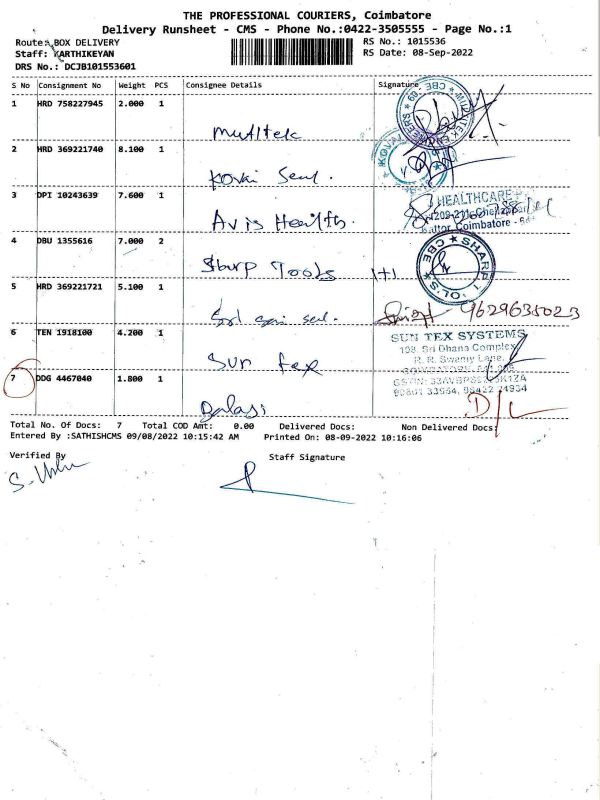 THE PROFESSIONAL COURIERS, Coimbatore
Delivery Runsheet - CMS - Phone No.:0422-3505555 - Page No.:1
Route: BOX DELIVERY
RS No.: 1015536
Staff: KARTHIKEYAN
RS Date: 08-Sep-2022
DRS No.: DCJB101553601
S No Consignment No Weight PCS Consignee Details Signature
1 HRD 758227945 2.000 1
2 HRD 369221740 8.100 1
Kovai Seal.
3 DPI 10243639 7.600 1
HEALTHCARE
Avis Health.
Coimbatore
4 DBU 1355616 7.000 2
Sharp Tools 1+1
SHARP TOOL'S CBE
5 HRD 369221721 5.100 1
9629635023
6 TEN 1918100 4.200 1
SUN TEX SYSTEMS
108, Sri Dhana Complex
R. R. Swamy Lane,
Sun tex
7 DDG 4467040 1.800 1
D/L
Total No. Of Docs: 7 Total COD Amt: 0.00 Delivered Docs: Non Delivered Docs:
Entered By :SATHISHCMS 09/08/2022 10:15:42 AM Printed On: 08-09-2022 10:16:06
Verified By
Staff Signature